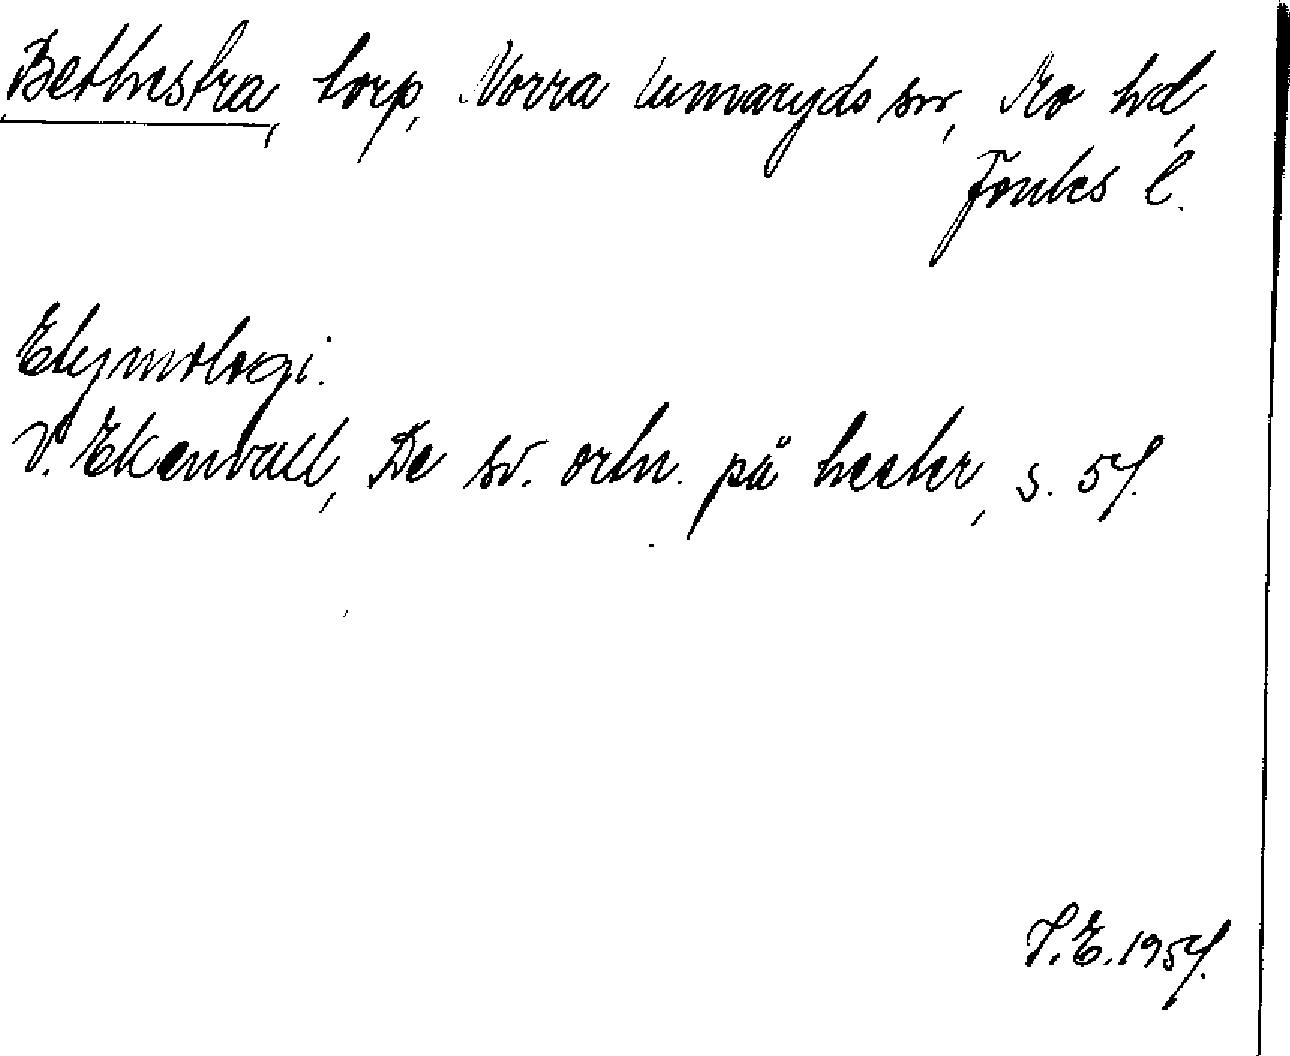 Bethestra, torp, Norra Unnaryds sn, Mo hd,
Jönkes l.
Etymologi.
V. Ekenvall, De sv. ortn. på hester, s. 57.
V.E. 1957.